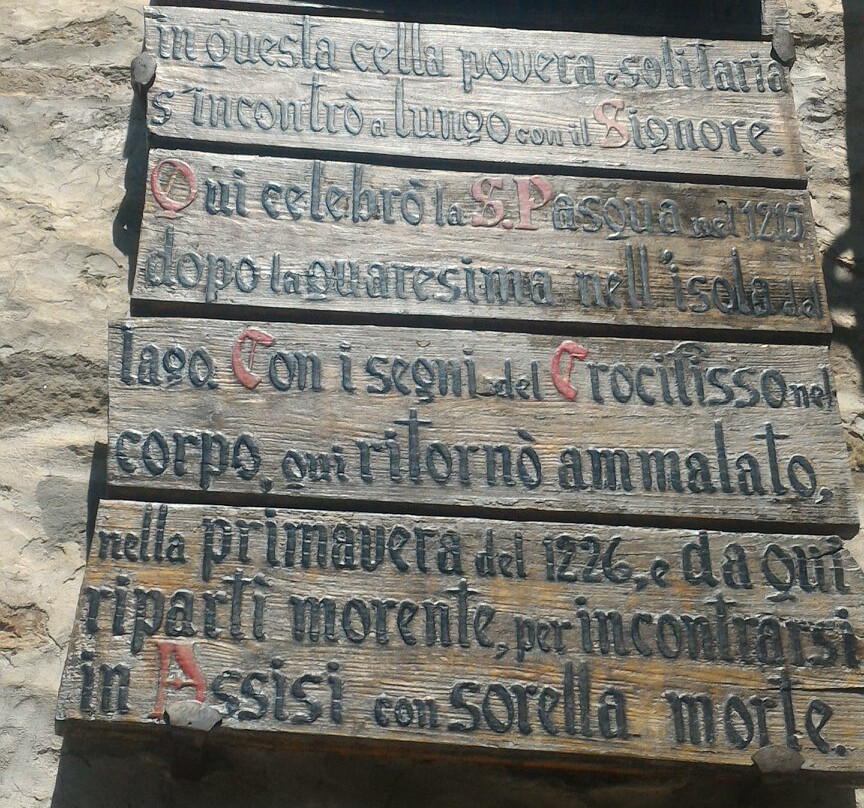 in questa cella povera e solitaria
s'incontrò a lungo con il Signore.
Qui celebrò la S. Pasqua nel 1215
dopo la quaresima nell'isola del
lago. Con i segni del Crocifisso nel
corpo, qui ritornò ammalato,
nella primavera del 1226, e da qui
ripartì morente, per incontrarsi
in Assisi con sorella morte.